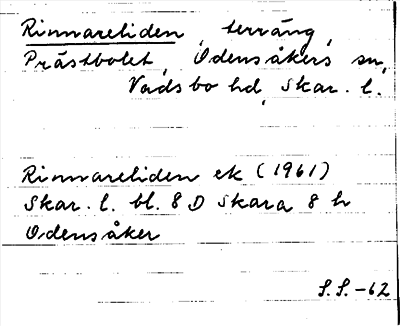 Rinnareliden, terräng,
Prästbolet, Odensåkers sn,
Vadsbo hd, Skar. l.
Rinnareliden ek (1961)
Skar. l. bl. 8 D Skara 8 h
Odensåker
S.S. -62